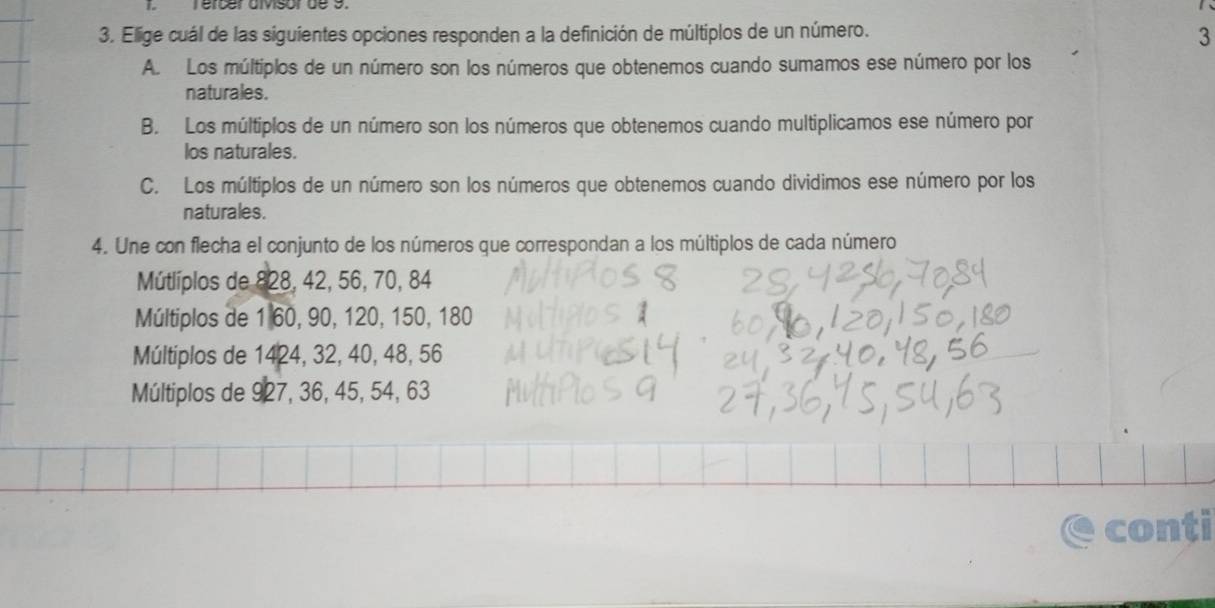 1. Tercer divisor de 9.
3. Elige cuál de las siguientes opciones responden a la definición de múltiplos de un número.
3
A. Los múltiplos de un número son los números que obtenemos cuando sumamos ese número por los
naturales.
B. Los múltiplos de un número son los números que obtenemos cuando multiplicamos ese número por
los naturales.
C. Los múltiplos de un número son los números que obtenemos cuando dividimos ese número por los
naturales.
4. Une con flecha el conjunto de los números que correspondan a los múltiplos de cada número
Mútliplos de 828, 42, 56, 70, 84 Multiplos 8 28, 42 56, 70, 84
Múltiplos de 1 60, 90, 120, 150, 180 Multiplos 1 60, 90, 120, 150, 180
Múltiplos de 1424, 32, 40, 48, 56 Multiples 14 24, 32, 40, 48, 56
Múltiplos de 927, 36, 45, 54, 63 Multiplos 9 27, 36, 45, 54, 63
conti